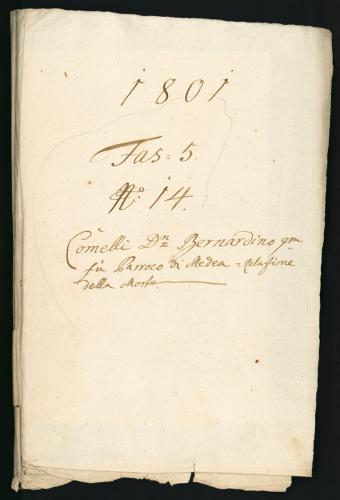 1801
Fas: 5.
N.º 14.
Comelli Dn Bernardino qm
fù Parroco di Medea = Relazione
della Morte